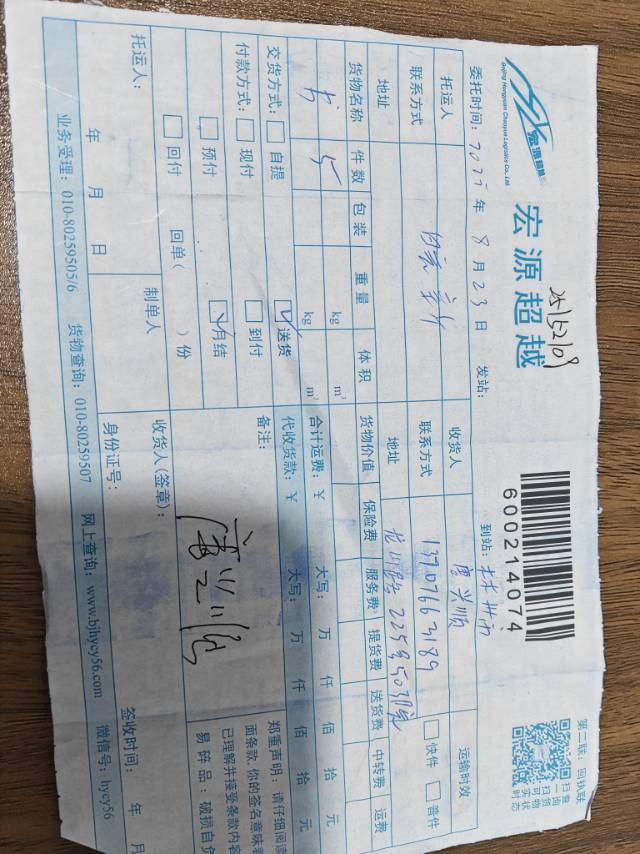 宏源超越
Beijing Hongyuan Chaoyue Logistics Co., Ltd.
600214074
第二联：回执联
扫查一由
扫货可物
二实状
委托时间：2025 年 8 月 23 日 发站： 到站：
托运人 收货人 唐兴顺 运输时效
联系方式 联系方式 13707663189 快件 普件
地址 地址 225号503房
货物名称 件数 包装 重量 体积 货物价值 保险费 服务费 提货费 送货费 中转费 运费
5 kg m³
kg m³ 合计运费：¥ 大写： 万 仟 佰 拾 元
交货方式： 自提 送货 代收货款：¥ 大写： 万 仟 佰 拾 元
付款方式： 现付 到付 备注：
预付 月结
回付 回单（ ）份
郑重声明：请仔细阅读
面条款，你的签名意味着
已理解并接受条款内容
易碎品：破损自负
托运人： 制单人 收货人(签章)： 唐兴顺
年 月 日 身份证号： 签收时间： 年 月
业务受理：010-80259505/6 货物查询：010-80259507 网上查询：www.bjhycy56.com 微信号：hycy56